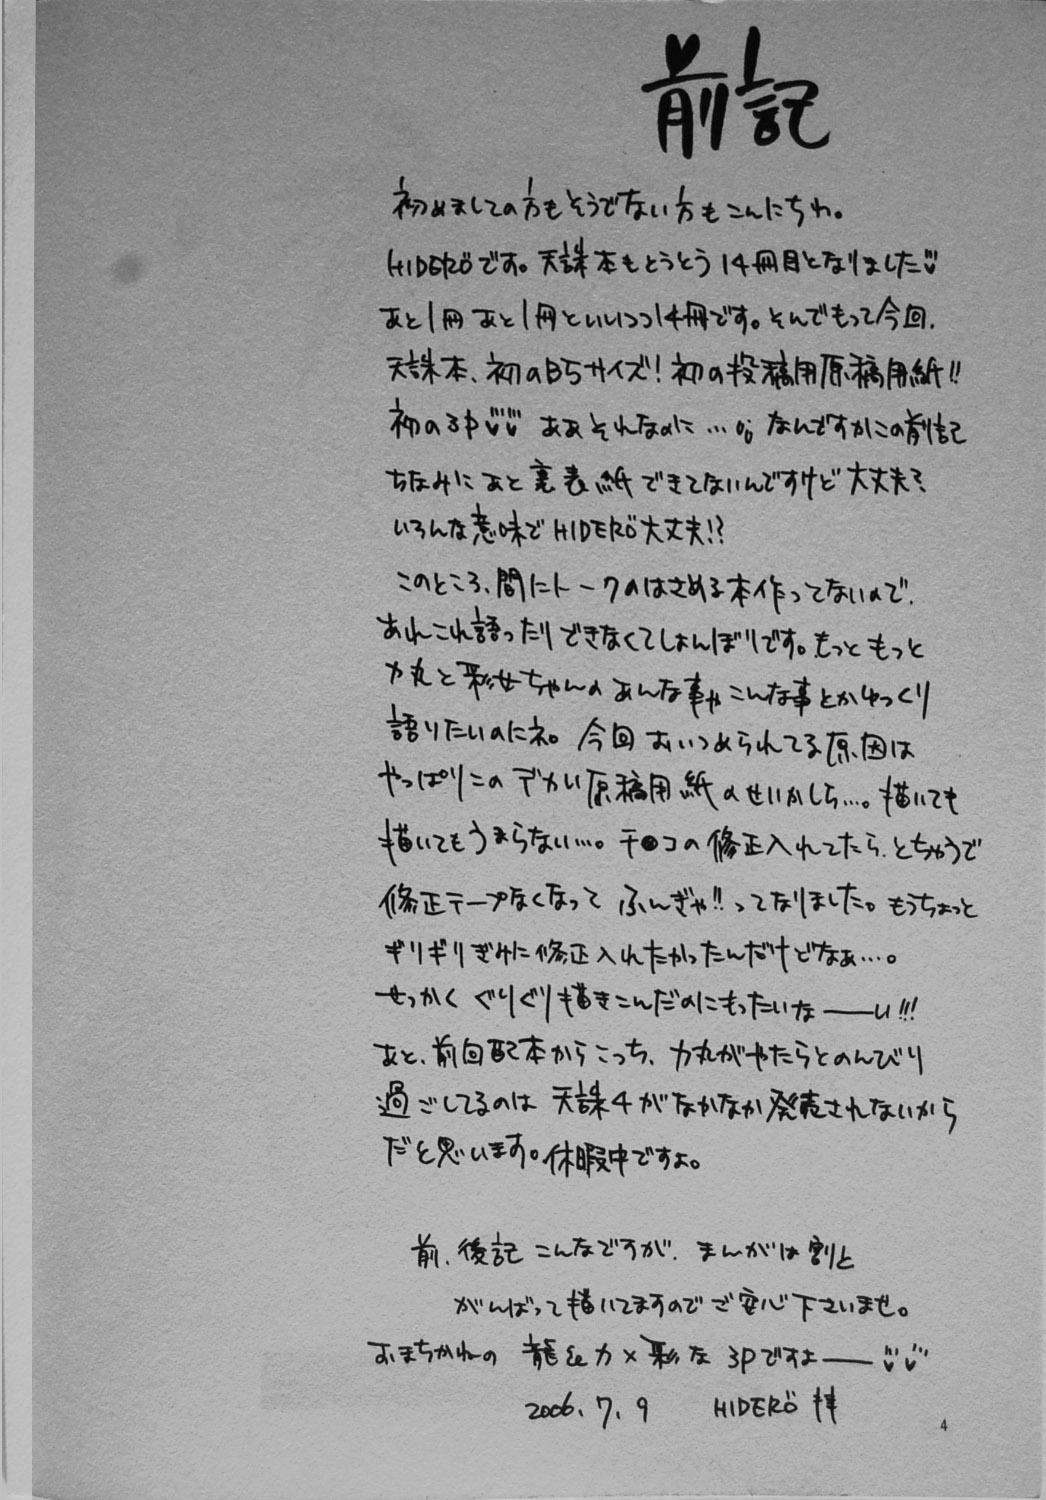 前記
初めましての方もそうでない方もこんにちわ。
HIDERÖです。天誅本もとうとう14冊目となりました
あと1冊あと1冊といいつつ14冊です。そんでもって今回、
天誅本、初のB5サイズ!初の投稿用原稿用紙!!
初の3P ああそれなのに…。なんですかこの前記
ちなみにあと裏表紙できてないんですけど大丈夫?
いろんな意味でHIDERÖ大丈夫!?
このところ、間にトークのはさめる本作ってないので、
あれこれ語ったりできなくてしょんぼりです。もっともっと
力丸と彩女ちゃんのあんな事やこんな事とかゆっくり
語りたいのにネ。今回おいつめられてる原因は
やっぱりこのデカい原稿用紙のせいかしら…。描いても
描いてもうまらない…。チ●コの修正入れてたら、とちゅうで
修正テープなくなってふんぎゃ!!ってなりました。もうちょっと
ギリギリぎみに修正入れたかったんだけどなぁ…。
せっかくぐりぐり描きこんだのにもったいな――い!!!
あと、前回配本からこっち、力丸がやたらとのんびり
過ごしてるのは天誅4がなかなか発売されないから
だと思います。休暇中ですよ。
前、後記こんなですが、まんがは割と
がんばって描いてますのでご安心下さいませ。
おまちかねの龍&力×彩な3Pですよ――
2006.7.9 HIDERÖ拝
4